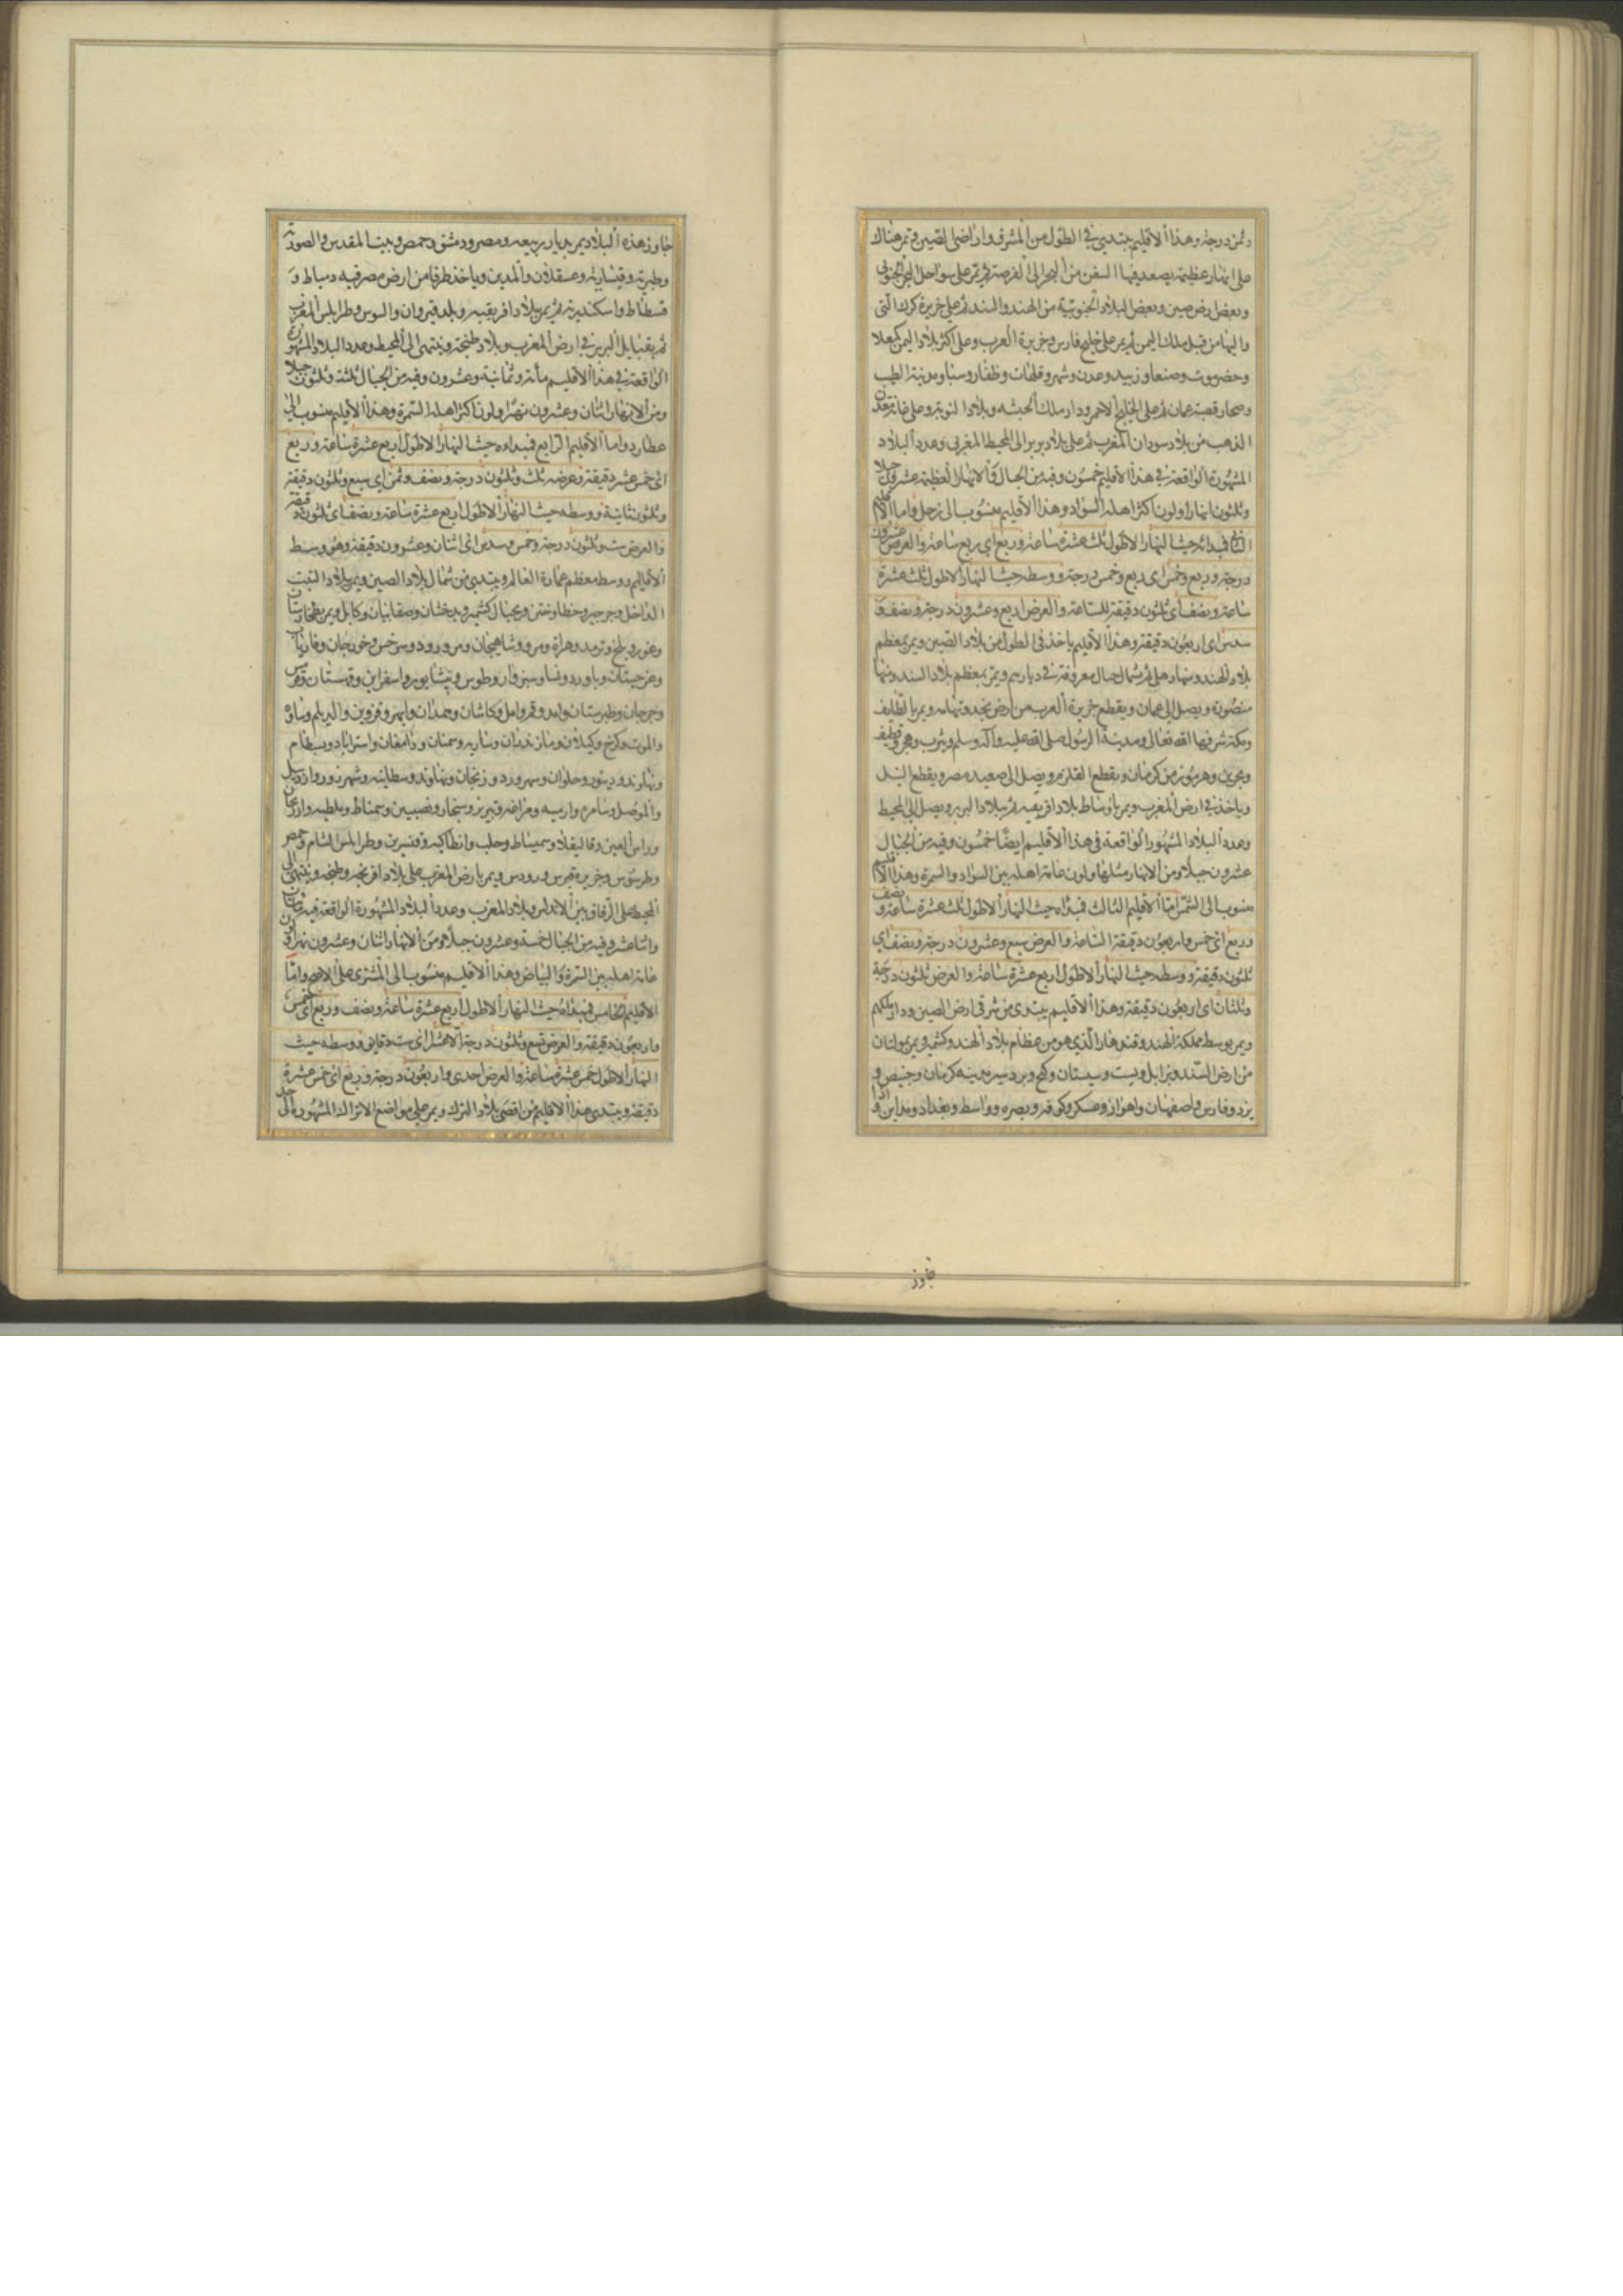 وثمن درجة وهذا الاقليم يبتدئ في الطول من المشرق واراضى الصين وتمر هناك
على انهار عظيمة يصعد فيها السفن من البحر الى الفرضة ثم تمر على سواحل البحر الجنوبى
وبعض ارض صين وبعض البلاد الجنوبية من الهند والسند ثم على جزيرة كرك التى
واليها من قبل ملك اليمن ثم يمر على خليج فارس وجزيرة العرب وعلى اكثر بلاد اليمن كمعلا
وحضرموت وصنعا وزبيد وعدن وشهر وقلهات وظفار وسبا ومدينة الطيب
وصحار قصبة عمان ثم على الخليج الاحمر ودار ملك الحبشه وبلاد النوبة وعلى غانة معدن
الذهب من بلاد سودان المغرب ثم على بلاد بربر الى المحيط المغربى وعدد البلاد
المشهورة الواقعة في هذا الاقليم خمسون وفيه من الجبال والانهار العظيمة عشرون جبلا
وثلثون انهارا ولون اكثر اهله السواد وهذا الاقليم منسوب الى زحل واما الاقليم
الثانى فمبدائه حيث النهار الاطول ثلث عشرة ساعة وربع اى ربع ساعة والعرض عشرون
درجة وربع وخمس اى ربع وخمس درجة ووسطه حيث النهار الاطول ثلث عشرة
ساعة ونصف اى ثلثون دقيقة للساعة والعرض اربع وعشرون درجة ونصف و
سدس اى اربعون دقيقة وهذا الاقليم ياخذ فى الطول من بلاد الصين ويمر بمعظم
بلاد الهند ومنها على ثم شمال جبال معروفة في ديارهم ويمر بمعظم بلاد السند ومنها
منصورة ويصل الى عمان ويقطع جزيرة العرب من ارض نجد وتهامه ويمر بالطايف
ومكة شرفها الله تعالى ومدينة الرسول صلى الله عليه وآله وسلم ويثرب وهجر وقطيف
وبحرين وهرموز من كرمان ويقطع القلزم ويصل الى صعيد مصر ويقطع النيل
وياخذ في ارض المغرب ويمر باوساط بلاد افريقيه ثم ببلاد البربر ويصل الى المحيط
وعدد البلاد المشهور الواقعة فى هذا الاقليم ايضا خمسون وفيه من الجبال
عشرون جبلا ومن الانهار مثلها ولون عامة اهله بين السواد والسمرة وهذا الاقليم
منسوب الى الشمس اما الاقليم الثالث فمبداه حيث النهار الاطول ثلث عشرة ساعة ونصف و
وربع اى خمس واربعون دقيقة الساعة والعرض سبع وعشرون درجة ونصف اى
ثلثون دقيقة ووسطه حيث النهار الاطول اربع عشرة ساعة والعرض ثلثون درجة
وثلثان اى اربعون دقيقة وهذا الاقليم يبتدى من شرقى ارض الصين ودار ملكهم
ويمر بوسط مملكة الهند وقندهار الذى هو من عظام بلاد الهند وكشمير ويمر بمولتان
من ارض السند وبزابل وبست وسيستان وكيج وبردسير مدينه كرمان وخبيص و
يزد وفارس واصفهان واهواز وعسكر وكوفه وبصره وواسط وبغداد ومداين واذا
جاوز
جاوز هذه البلاد يمر بديار ربيعه ومصر ودمشق وحمص وبيت المقدس والصور
وطبرية وقيسارية وعسقلان والمدين وياخذ طرفا من ارض مصر فيه دمياط و
فسطاط واسكندرية ثم يمر ببلاد افريقيه وبلد قيروان والسوس وطرابلس المغرب
ثم بقبايل البربر في ارض المغرب وبلاد طنجة وينتهى الى المحيط وعدد البلاد المشهورة
الواقعة في هذا الاقليم مأة وثمانية وعشرون وفيه من الجبال ثلثة وثلثون جبلا
ومن الانهار اثنان وعشرون نهرا ولون اكثر اهله السمرة وهذا الاقليم منسوب الى
عطارد واما الاقليم الرابع فمبداوه حيث النهار الاطول اربع عشرة ساعة وربع
اى خمس عشر دقيقة وعرضه ثلث وثلثون درجة ونصف وثمن اى سبع وثلثون دقيقة
وثلثون ثانية ووسطه حيث النهار الاطول اربع عشرة ساعة ونصف اى ثلثون دقيقة
والعرض ست وثلثون درجة وخمس وسدس اى اثنان وعشرون دقيقة وهو وسط
الاقاليم ووسط معظم عمارة العالم ويبتدئ من شمال بلاد الصين ويمر ببلاد التبت
الداخل وجرجير وخطا وختن وبجبال كشمير وبدخشان وصغانيان وكابل ويمر بطخارستان
وغور وبلخ وترمد وهراة ومرو وشاهيجان ومرورود وسرخس وجوزجان وفارياب
وغرجستان وباورد ونسا وسبزوار وطوس ونيشابور واسفراين وقهستان وقومس
وجرجان وطبرستان وامد وقم وامل وكاشان وهمدان وابهر وقزوين والديلم وساوه
والموت وكرج وكيلان ومازندران وساريه وسمنان ودامغان واستراباد وبسطام
ونهاوند ودينور وحلوان وسهرورد وزنجان ونهاوند وسطانيه وشهرزور واردبيل
والموصل وسامره وارميه ومراغه وتبريز وسنجار ونصيبين وسمناط وملطيه وارزنجان
وراس العين وقاليقلا وسميساط وحلب وانطاكيه وقنسرين وطرابلس الشام وحمص
وطرسوس وجزيرة قبرس ورودس ويمر بارض المغرب على بلاد افرنجه وطنجه وينتهى الى
المحيط على الزقاق بين الاندلس وبلاد المغرب وعدد البلاد المشهورة الواقعة فيه مأتان
واثنا عشر وفيه من الجبال خمسة وعشرون جبلا ومن الانهار اثنان وعشرون نهرا ولون
عامة اهله بين السمرة والبياض وهذا الاقليم منسوب الى المشترى على الاصح واما
الاقليم الخامس فمبداه حيث النهار الاطول اربع عشرة ساعة ونصف وربع اى خمس
واربعون دقيقة والعرض تسع وثلثون درجة الا عشرا اى ست دقايق ووسطه حيث
النهار الاطول خمس عشرة ساعة والعرض احدى واربعون درجة وربع اى خمس عشرة
دقيقة ويبتدى هذا الاقليم من اقصى بلاد الترك ويمر على مواضع الاتراك المشهورة الى حد